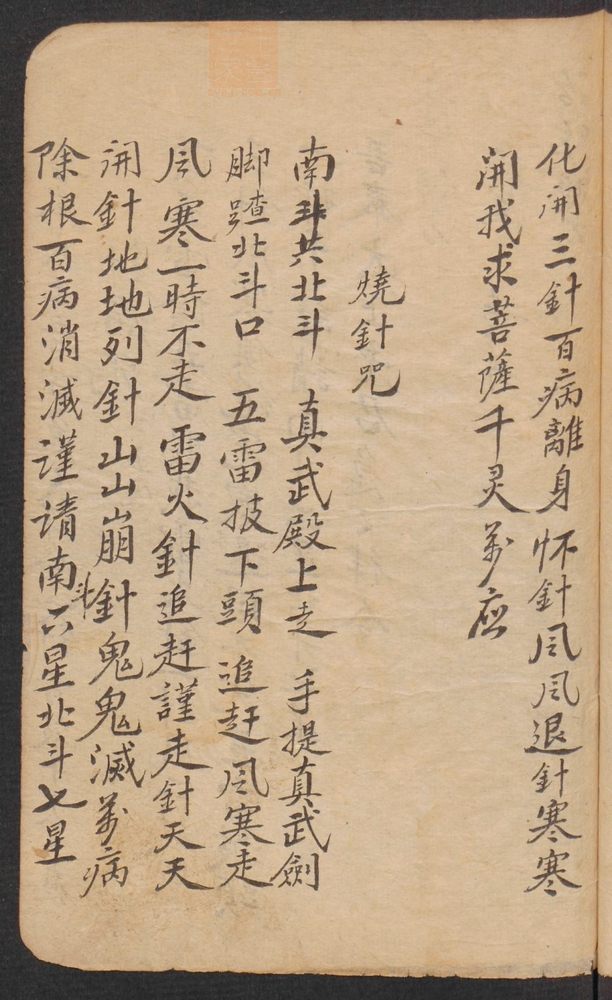 化開三針百病離身 怀針风风退針寒寒
開我求菩薩千灵萬应
燒針咒
南斗共北斗 真武殿上走 手提真武劍
脚踏北斗口 五雷披下頭 追赶风寒走
风寒一時不走 雷火針追赶謹走針天天
開針地地列針山山崩針鬼鬼滅萬病
除根百病消滅謹请南斗六星北斗七星